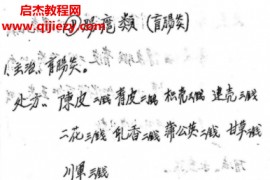 启杰教程网
www.qijiejc.com
数（盲肠炎）
1.主治、盲肠炎。
处方、陈皮三钱 青皮三钱 枳壳三钱 連壳三钱
二花三钱 乳香三钱 蒲公英三钱 甘草钱
川軍三钱